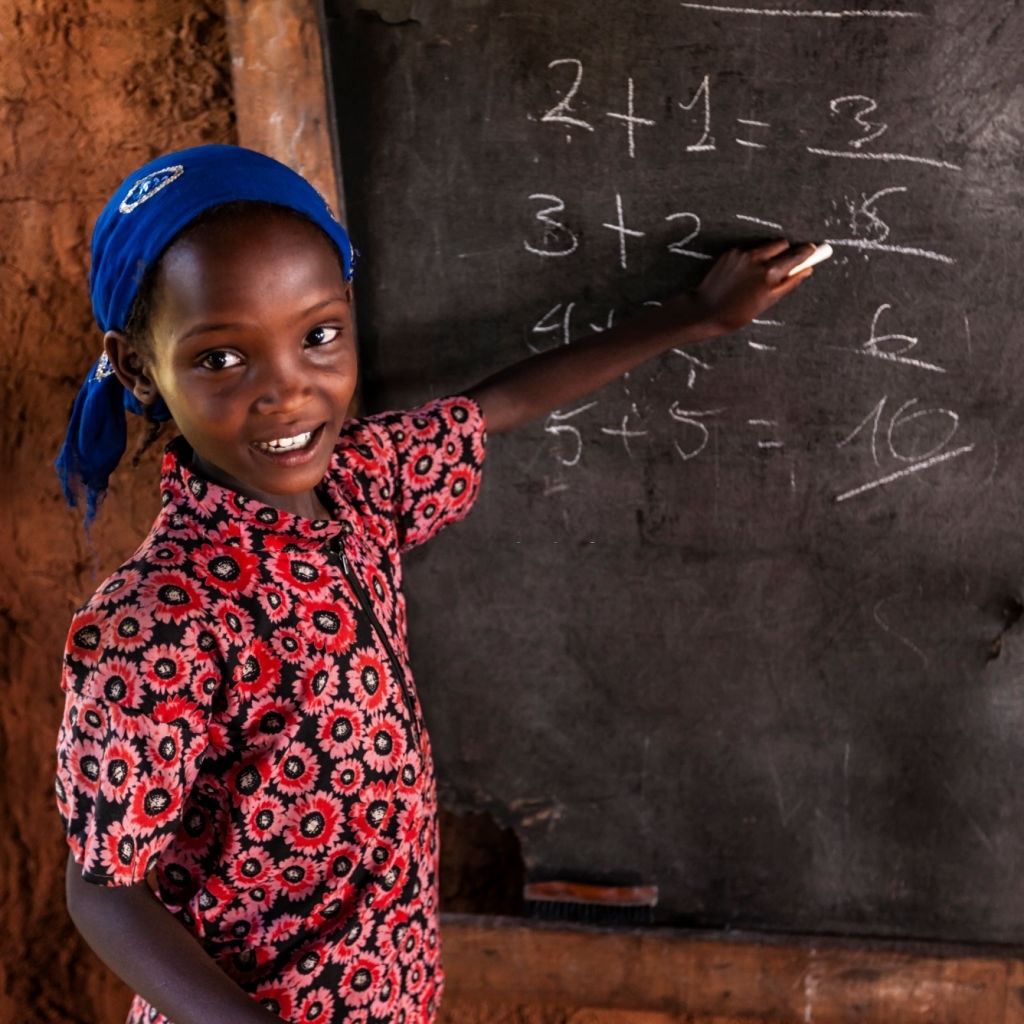 2 + 1 = 3
3 + 2 = 5
4 + = 6
5 + 5 = 10